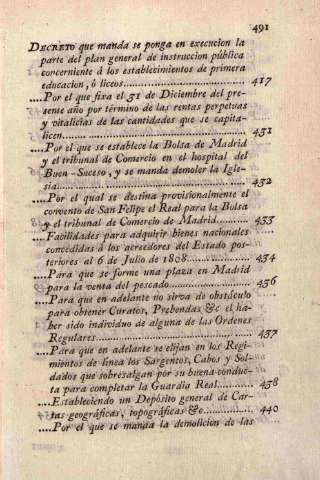 491
DECRETO que manda se ponga en execucion la
parte del plan general de instruccion pública
concerniente á los establecimientos de primera
educacion, ó liceos.............................. 417
....Por el que fixa el 31 de Diciembre del pre-
sente año por término de las rentas perpetuas
y vitalicias de las cantidades que se capita-
licen.............................. 431
....Por el que se establece la Bolsa de Madrid
y el tribunal de Comercio en el hospital del
Buen-Suceso, y se manda demoler la Igle-
sia.............................. 432
....Por el qual se destina provisionalmente el
convento de San Felipe el Real para la Bolsa
y el tribunal de Comercio de Madrid......... 433
....Facilidades para adquirir bienes nacionales
concedidas á los acreedores del Estado pos-
teriores al 6 de Julio de 1808............... 434
....Para que se forme una plaza en Madrid
para la venta del pescado.................. 436
....Para que en adelante no sirva de obstáculo
para obtener Curatos, Prebendas &c el ha-
ber sido individuo de alguna de las Ordenes
Regulares.............................. 437
....Para que en adelante se elijan en los Regi-
mientos de línea los Sargentos, Cabos y Sol-
dados que sobresalgan por su buena conduc-
ta para completar la Guardia Real......... 438
....Estableciendo un Depósito general de Car-
tas geográficas, topográficas &c............ 440
....Por el que se manda la demolicion de las